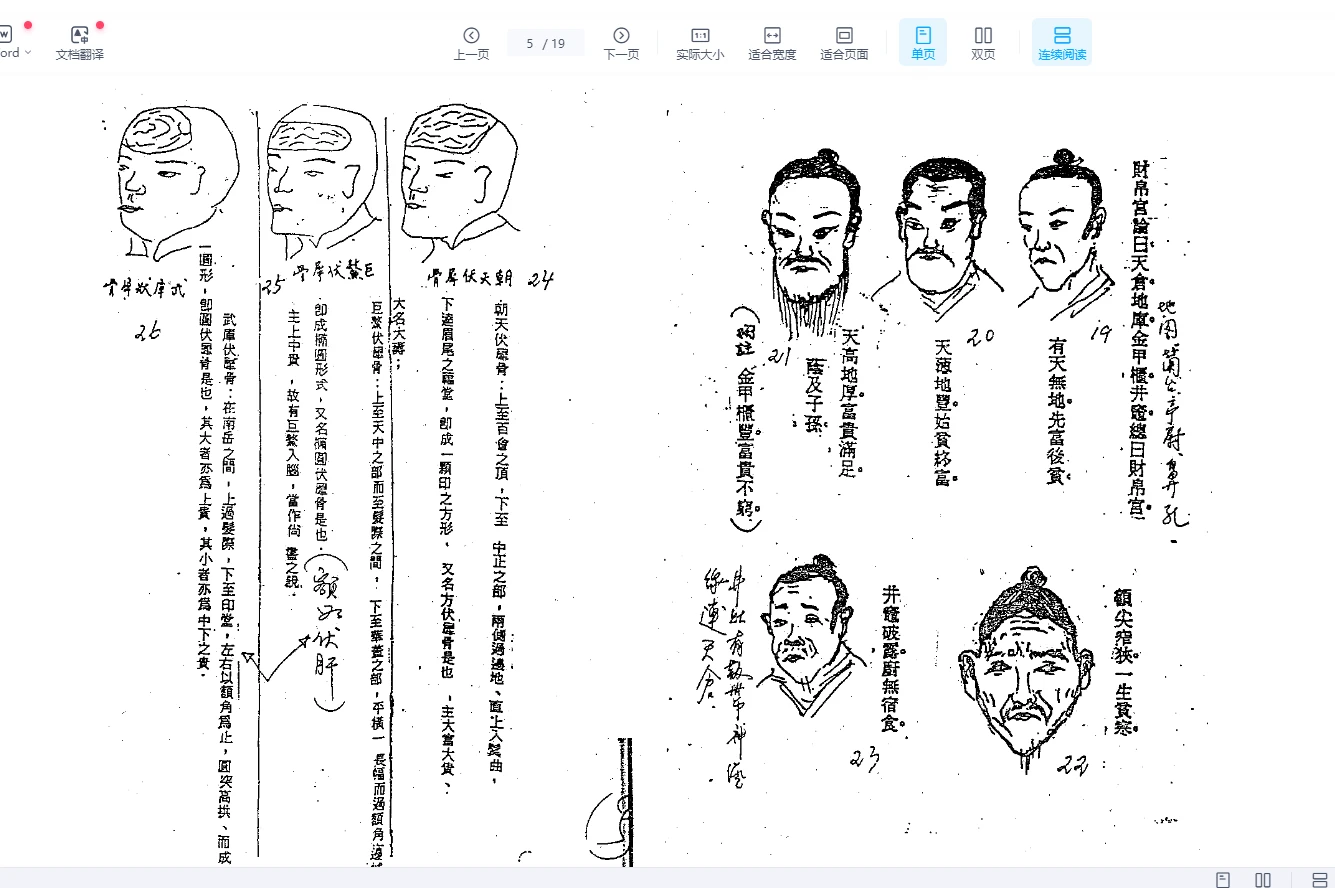 ord
文档翻译
上一页
5 / 19
下一页
实际大小
适合宽度
适合页面
单页
双页
连续阅读
財帛宮論曰天倉地庫金甲櫃井竈總曰財帛宮
19
有天無地先富後貧
20
天薄地豐始貧終富
21
天高地厚富貴滿足
蔭及子孫
(附註 金甲櫃豐富貴不窮。)
額尖窄狹一生貧寒。
22
井竈破露廚無宿食。
23
24
朝天伏犀骨：上至百會之頂，下至 中正之部，兩側過邊地、直上入鬢曲，
下達眉尾之福堂，即成一顆印之方形，又名方伏犀骨是也，主大富大貴、
大名大壽；
25
巨鰲伏犀骨：上至天中之部而至髮際之間，下至華蓋之部，平橫一 長幅而過額角邊
即成橢圓形式，又名橢圓伏犀骨是也。
(額如伏肝)
主上中貴，故有巨鰲入腦，當作尚 書之說。
26
武庫伏犀骨：在南岳之間，上過髮際，下至印堂，左右以額角為止，圓突高拱、而成
一圓形，即圓伏犀骨是也，其大者亦為上貴，其小者亦為中下之貴。